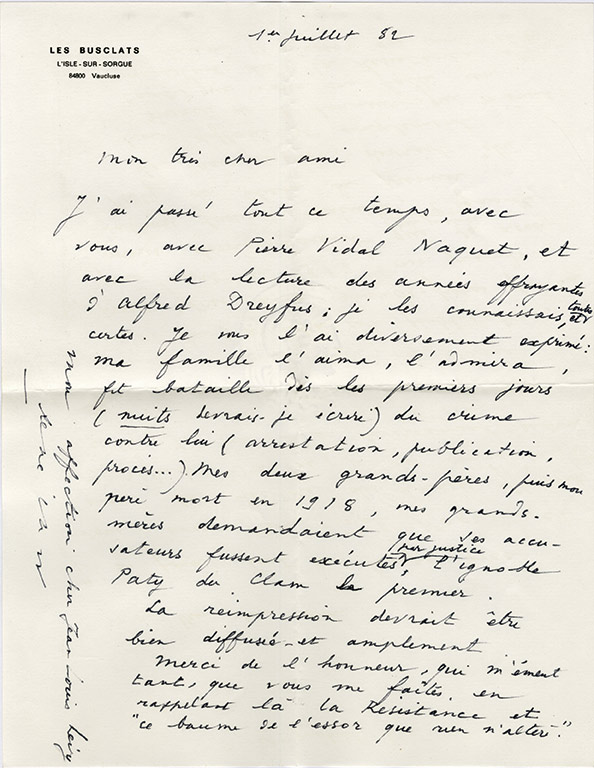 LES BUSCLATS
L'ISLE-SUR-SORGUE
84800 Vaucluse
1er juillet 82
Mon très cher ami
J'ai passé tout ce temps, avec
vous, avec Pierre Vidal Naquet, et
avec la lecture des années effrayantes
d'Alfred Dreyfus; je les connaissais, toutes
certes. Je vous l'ai diversement exprimé:
ma famille l'aima, l'admira,
fit bataille dès les premiers jours
(nuits devrais-je écrire) du crime
contre lui (arrestation, publication,
procès...). Mes deux grands-pères, puis mon
père mort en 1918, mes grands-
mères demandaient que ses accu-
sateurs fussent exécutés, par justice l'ignoble
Paty du Clam le premier.
La réimpression devrait être
bien diffusée et amplement
Merci de l'honneur, qui m'émeut
tant, que vous me faîtes en
rappelant là la Résistance et
"ce baume de l'essor que rien n'altère".
Mon affection cher Jean Louis Lévy
René Char